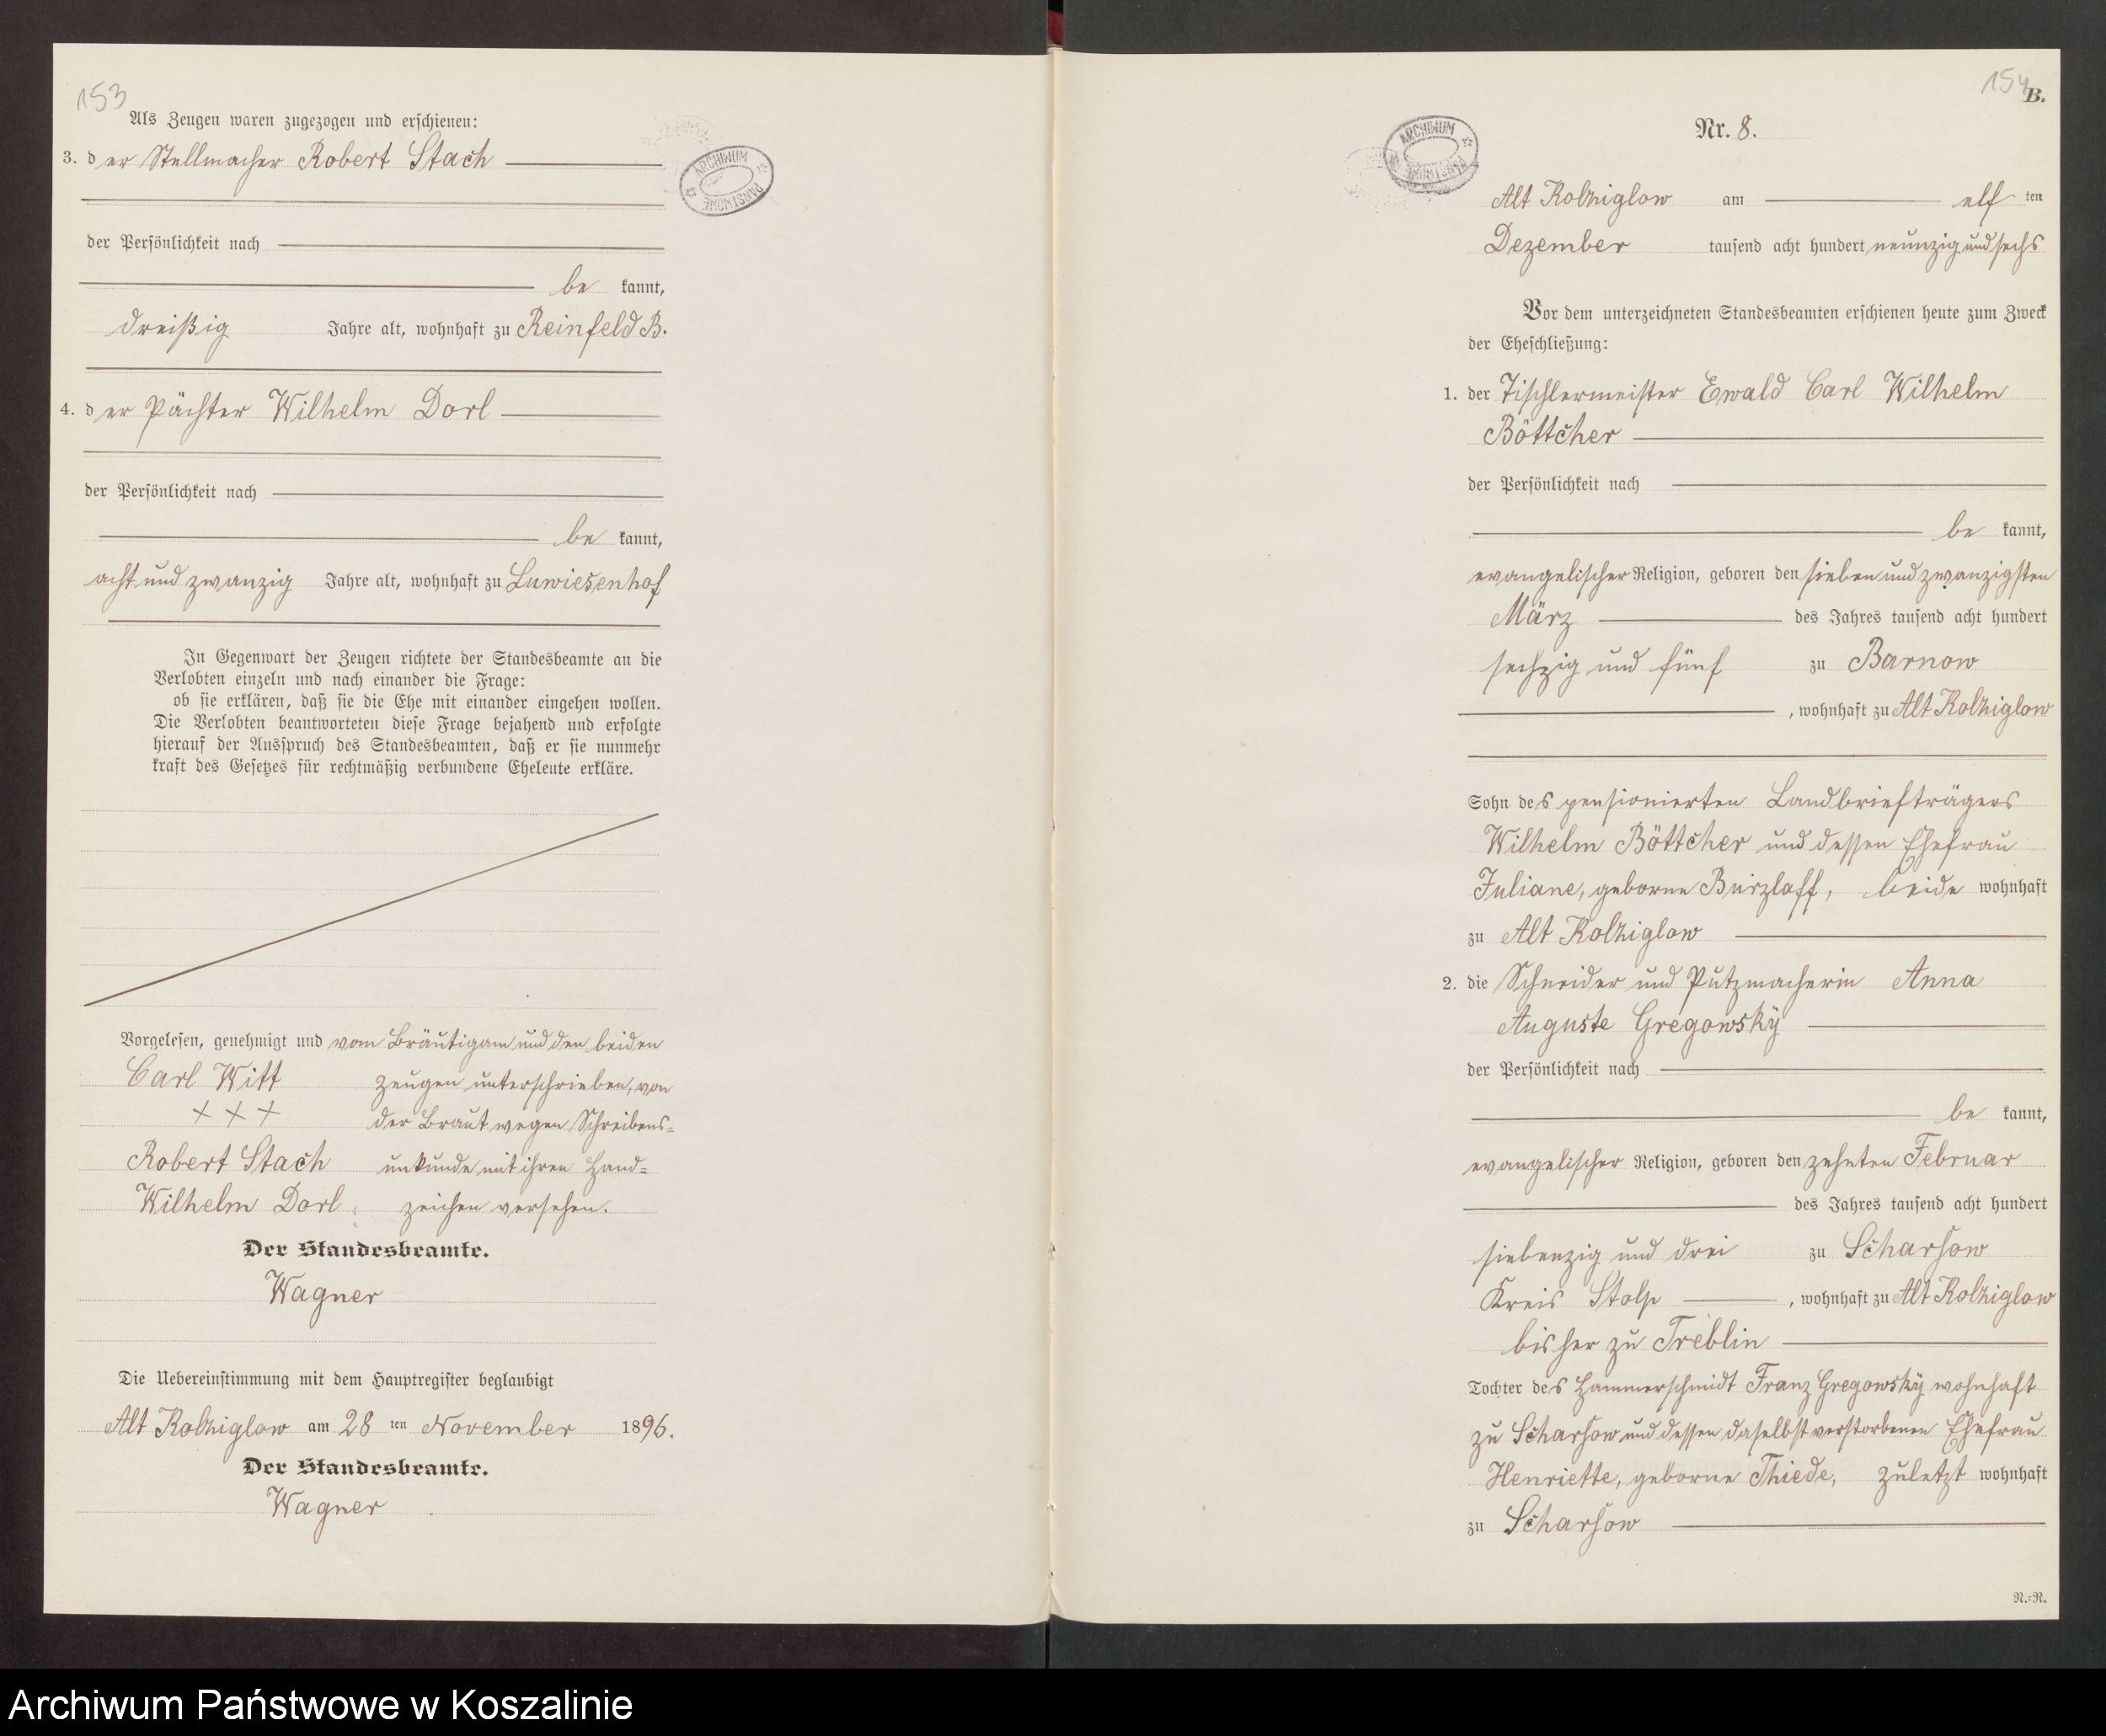 153
Als Zeugen waren zugezogen und erschienen:
3. der Stellmacher Robert Stach
der Persönlichkeit nach
be kannt,
dreißig Jahre alt, wohnhaft zu Reinfeld B.
4. der Pächter Wilhelm Dorl
der Persönlichkeit nach
be kannt,
acht und zwanzig Jahre alt, wohnhaft zu Luwiesenhof
In Gegenwart der Zeugen richtete der Standesbeamte an die
Verlobten einzeln und nach einander die Frage:
ob sie erklären, daß sie die Ehe mit einander eingehen wollen.
Die Verlobten beantworteten diese Frage bejahend und erfolgte
hierauf der Ausspruch des Standesbeamten, daß er sie nunmehr
kraft des Gesetzes für rechtmäßig verbundene Eheleute erkläre.
Vorgelesen, genehmigt und vom Bräutigam und den beiden
Carl Witt zeugen unterschrieben, von
+ + + der Braut wegen Schreibens-
Robert Stach unkunde mit ihren Hand-
Wilhelm Dorl zeichen versehen.
Der Standesbeamte.
Wagner
Die Uebereinstimmung mit dem Hauptregister beglaubigt
Alt Kolziglow am 28 ten November 1896.
Der Standesbeamte.
Wagner
ARCHIWUM PAŃSTWOWE
154
B.
ARCHIWUM PAŃSTWOWE
Nr. 8.
Alt Kolziglow am elf ten
Dezember tausend acht hundert neunzig und sechs
Vor dem unterzeichneten Standesbeamten erschienen heute zum Zweck
der Eheschließung:
1. der Tischlermeister Ewald Carl Wilhelm
Böttcher
der Persönlichkeit nach
be kannt,
evangelischer Religion, geboren den sieben und zwanzigsten
März des Jahres tausend acht hundert
sechzig und fünf zu Barnow
, wohnhaft zu Alt Kolziglow
Sohn des pensionierten Landbriefträgers
Wilhelm Böttcher und dessen Ehefrau
Juliane, geborne Burzlaff, beide wohnhaft
zu Alt Kolziglow
2. die Schneider und Putzmacherin Anna
Auguste Gregowsky
der Persönlichkeit nach
be kannt,
evangelischer Religion, geboren den zehnten Februar
des Jahres tausend acht hundert
siebenzig und drei zu Scharsow
Kreis Stolp , wohnhaft zu Alt Kolziglow
bisher zu Treblin
Tochter des Hammerschmidt Franz Gregowsky wohnhaft
zu Scharsow und dessen daselbst verstorbenen Ehefrau
Henriette, geborne Thiede, zuletzt wohnhaft
zu Scharsow
N.=R.
Archiwum Państwowe w Koszalinie